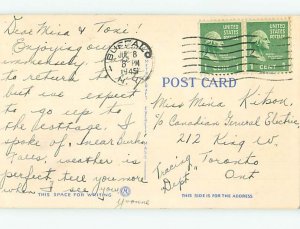 Dear Mina & Tose!
Enjoying our
immensely
to return to
but we expect
to go up to
the cottage. I
spoke of, near Burks
Falls, weather is
perfect, tell you more
when I see you
Yvonne
THIS SPACE FOR WRITING
BUFFALO
JUL 8
PM
1945
N.Y.
UNITED STATES POSTAGE
1 CENT
POST CARD
Miss Mina Kitson,
c/o Canadian General Electric
212 King W.
Toronto
Ont
"Tracing Dept"
THIS SIDE IS FOR THE ADDRESS